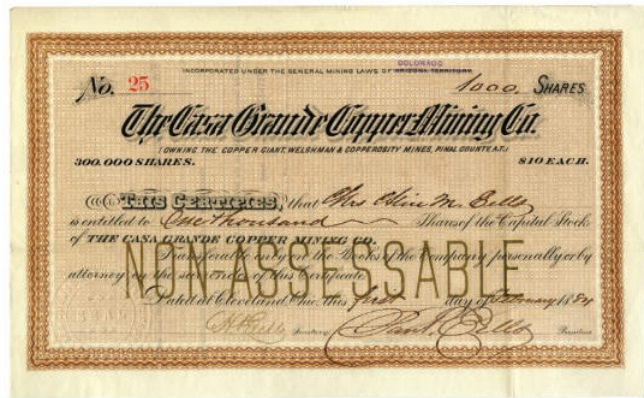 COLORADO
INCORPORATED UNDER THE GENERAL MINING LAWS OF ARIZONA TERRITORY
No. 25 1000, SHARES
The Casa Grande Copper Mining Co.
(OWNING THE COPPER GIANT, WELSHMAN & COPPEROSITY MINES, PINAL COUNTY A.T.)
300.000 SHARES. $10 EACH.
THIS CERTIFIES, that Mrs M. Eells
is entitled to One thousand Shares of the Capital Stock
of THE CASA GRANDE COPPER MINING CO.
Transferable only on the Books of the Company, personally or by
attorney on the surrender of this Certificate
NON-ASSESSABLE
Dated at Cleveland, Ohio, this first day of February 1884
Eells Secretary Dan P. Eells President